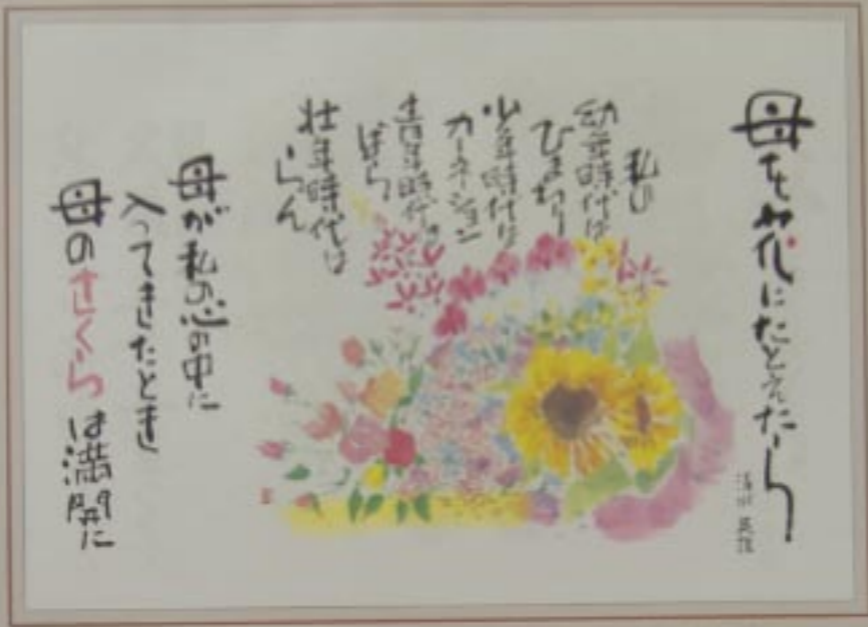 母を花にたとえたら
私の
幼年時代は
ひまわり
少年時代は
カーネーション
青年時代は
ばら
壮年時代は
らん
母が私の心の中に
入ってきたとき
母のさくらは満開に